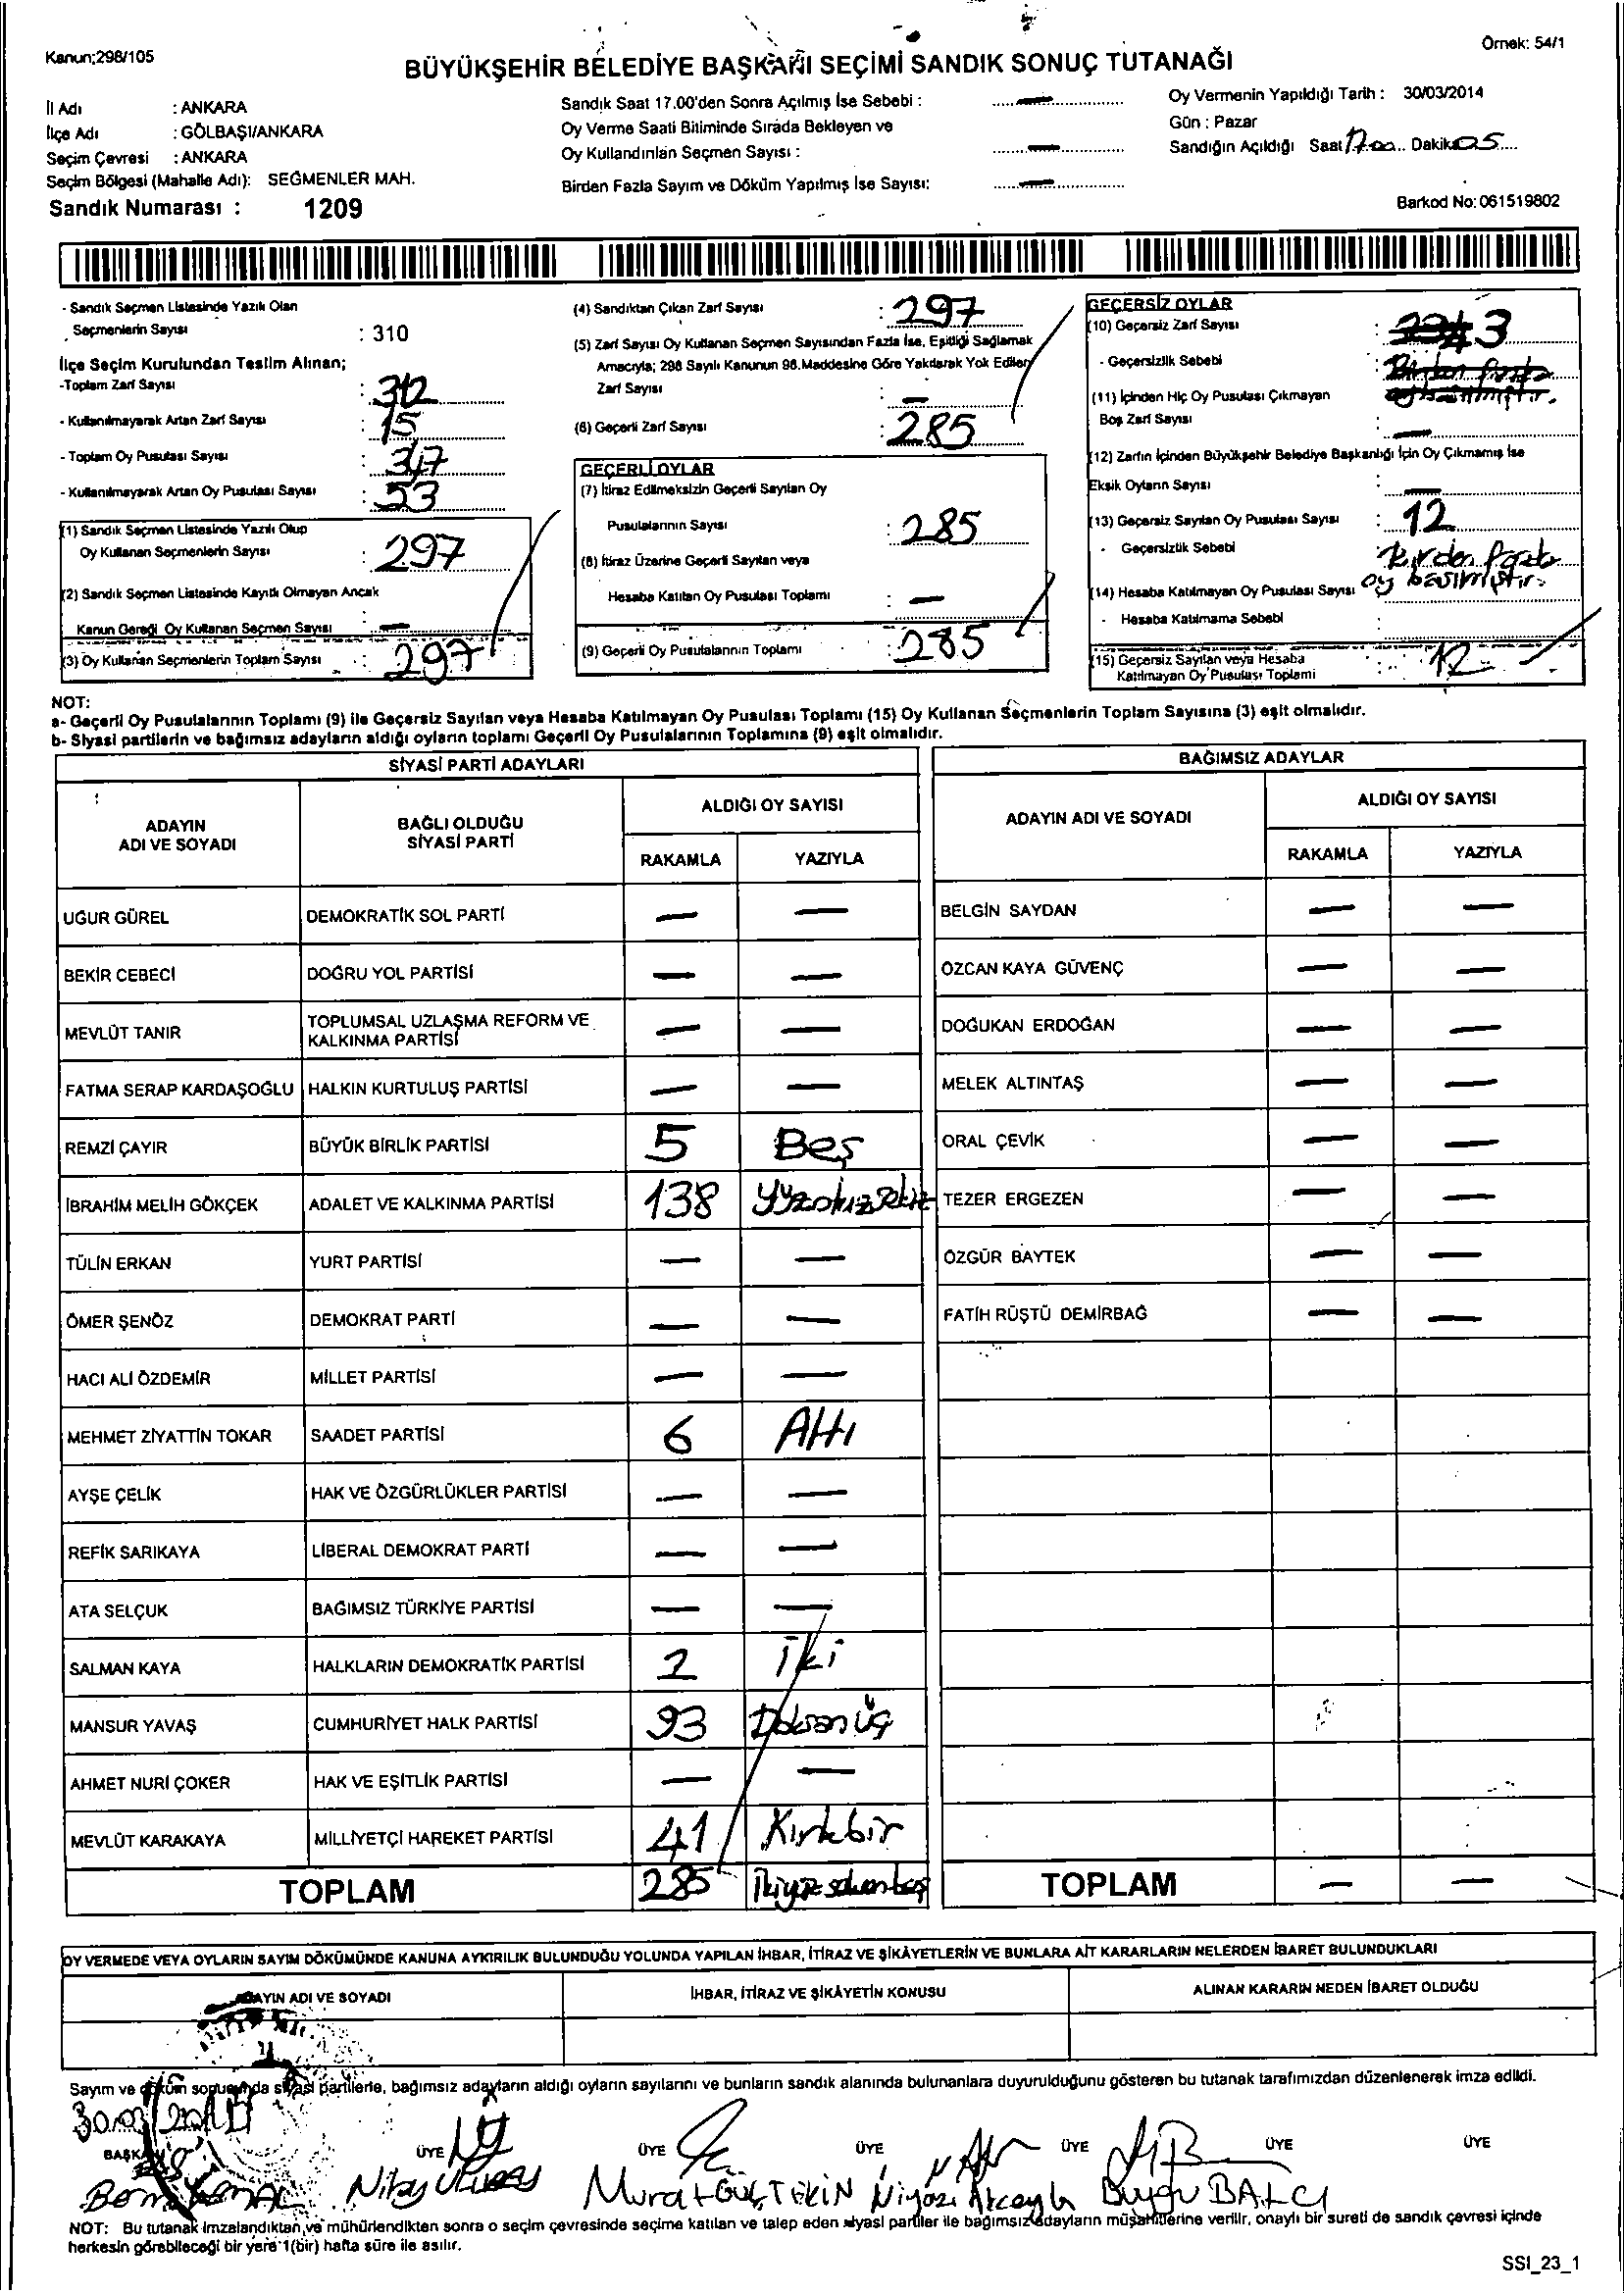 Kanun;298/105
Örnek: 54/1
BÜYÜKŞEHİR BELEDİYE BAŞKANI SEÇİMİ SANDIK SONUÇ TUTANAĞI
İl Adı : ANKARA
İlçe Adı : GÖLBAŞI/ANKARA
Seçim Çevresi : ANKARA
Seçim Bölgesi (Mahalle Adı): SEĞMENLER MAH.
Sandık Numarası : 1209
Sandık Saat 17.00'den Sonra Açılmış İse Sebebi : —
Oy Verme Saati Bitiminde Sırada Bekleyen ve
Oy Kullandırılan Seçmen Sayısı : —
Birden Fazla Sayım ve Döküm Yapılmış İse Sayısı: —
Oy Vermenin Yapıldığı Tarih : 30/03/2014
Gün : Pazar
Sandığın Açıldığı Saat 17.00 Dakika 05
Barkod No: 061519802
- Sandık Seçmen Listesinde Yazılı Olan
Seçmenlerin Sayısı : 310
İlçe Seçim Kurulundan Teslim Alınan;
-Toplam Zarf Sayısı : 312
- Kullanılmayarak Artan Zarf Sayısı : 15
- Toplam Oy Pusulası Sayısı :
- Kullanılmayarak Artan Oy Pusulası Sayısı : 53
(1) Sandık Seçmen Listesinde Yazılı Olup
Oy Kullanan Seçmenlerin Sayısı : 297
(2) Sandık Seçmen Listesinde Kayıtlı Olmayan Ancak
Kanun Gereği Oy Kullanan Seçmen Sayısı : —
(3) Oy Kullanan Seçmenlerin Toplam Sayısı : 297
(4) Sandıktan Çıkan Zarf Sayısı : 297
(5) Zarf Sayısı Oy Kullanan Seçmen Sayısından Fazla İse, Eşitliği Sağlamak
Amacıyla; 298 Sayılı Kanunun 98.Maddesine Göre Yakılarak Yok Edilen
Zarf Sayısı : —
(6) Geçerli Zarf Sayısı : 285
GEÇERLİ OYLAR
(7) İtiraz Edilmeksizin Geçerli Sayılan Oy
Pusulalarının Sayısı : 285
(8) İtiraz Üzerine Geçerli Sayılan veya
Hesaba Katılan Oy Pusulası Toplamı : —
(9) Geçerli Oy Pusulalarının Toplamı : 285
GEÇERSİZ OYLAR
(10) Geçersiz Zarf Sayısı : 3
- Geçersizlik Sebebi : Birden fazla
oy basılmıştır.
(11) İçinden Hiç Oy Pusulası Çıkmayan
Boş Zarf Sayısı : —
(12) Zarfın İçinden Büyükşehir Belediye Başkanlığı İçin Oy Çıkmamış İse
Eksik Oyların Sayısı : —
(13) Geçersiz Sayılan Oy Pusulası Sayısı : 12
- Geçersizlik Sebebi : Birden fazla
(14) Hesaba Katılmayan Oy Pusulası Sayısı oy basılmıştır.
- Hesaba Katılmama Sebebi :
(15) Geçersiz Sayılan veya Hesaba
Katılmayan Oy Pusulası Toplamı : 12
NOT:
a- Geçerli Oy Pusulalarının Toplamı (9) ile Geçersiz Sayılan veya Hesaba Katılmayan Oy Pusulası Toplamı (15) Oy Kullanan Seçmenlerin Toplam Sayısına (3) eşit olmalıdır.
b- Siyasi partilerin ve bağımsız adayların aldığı oyların toplamı Geçerli Oy Pusulalarının Toplamına (9) eşit olmalıdır.
SİYASİ PARTİ ADAYLARI
ADAYIN ADI VE SOYADI BAĞLI OLDUĞU SİYASİ PARTİ ALDIĞI OY SAYISI
RAKAMLA YAZIYLA
UĞUR GÜREL DEMOKRATİK SOL PARTİ — —
BEKİR CEBECİ DOĞRU YOL PARTİSİ — —
MEVLÜT TANIR TOPLUMSAL UZLAŞMA REFORM VE KALKINMA PARTİSİ — —
FATMA SERAP KARDAŞOĞLU HALKIN KURTULUŞ PARTİSİ — —
REMZİ ÇAYIR BÜYÜK BİRLİK PARTİSİ 5 Beş
İBRAHİM MELİH GÖKÇEK ADALET VE KALKINMA PARTİSİ 138 Yüzotuzsekiz
TÜLİN ERKAN YURT PARTİSİ — —
ÖMER ŞENÖZ DEMOKRAT PARTİ — —
HACI ALİ ÖZDEMİR MİLLET PARTİSİ — —
MEHMET ZİYATTİN TOKAR SAADET PARTİSİ 6 Altı
AYŞE ÇELİK HAK VE ÖZGÜRLÜKLER PARTİSİ — —
REFİK SARIKAYA LİBERAL DEMOKRAT PARTİ — —
ATA SELÇUK BAĞIMSIZ TÜRKİYE PARTİSİ — —
SALMAN KAYA HALKLARIN DEMOKRATİK PARTİSİ 2 İki
MANSUR YAVAŞ CUMHURİYET HALK PARTİSİ 93 Doksanüç
AHMET NURİ ÇOKER HAK VE EŞİTLİK PARTİSİ — —
MEVLÜT KARAKAYA MİLLİYETÇİ HAREKET PARTİSİ 41 Kırkbir
TOPLAM 285 İkiyüzseksenbeş
BAĞIMSIZ ADAYLAR
ADAYIN ADI VE SOYADI ALDIĞI OY SAYISI
RAKAMLA YAZIYLA
BELGİN SAYDAN — —
ÖZCAN KAYA GÜVENÇ — —
DOĞUKAN ERDOĞAN — —
MELEK ALTINTAŞ — —
ORAL ÇEVİK — —
TEZER ERGEZEN — —
ÖZGÜR BAYTEK — —
FATİH RÜŞTÜ DEMİRBAĞ — —
TOPLAM — —
OY VERMEDE VEYA OYLARIN SAYIM DÖKÜMÜNDE KANUNA AYKIRILIK BULUNDUĞU YOLUNDA YAPILAN İHBAR, İTİRAZ VE ŞİKÂYETLERİN VE BUNLARA AİT KARARLARIN NELERDEN İBARET BULUNDUKLARI
ADAYIN ADI VE SOYADI İHBAR, İTİRAZ VE ŞİKÂYETİN KONUSU ALINAN KARARIN NEDEN İBARET OLDUĞU
Sayım ve döküm sonucunda siyasi partilerle, bağımsız adayların aldığı oyların sayılarını ve bunların sandık alanında bulunanlara duyurulduğunu gösteren bu tutanak tarafımızdan düzenlenerek imza edildi.
BAŞKAN ÜYE ÜYE ÜYE ÜYE ÜYE ÜYE
Murat GÜLTEKİN Niyazi Duygu BALCI
NOT: Bu tutanak imzalandıktan ve mühürlendikten sonra o seçim çevresinde seçime katılan ve talep eden siyasi partiler ile bağımsız adayların müşahitlerine verilir, onaylı bir sureti de sandık çevresi içinde
herkesin görebileceği bir yere 1(bir) hafta süre ile asılır.
SSI_23_1